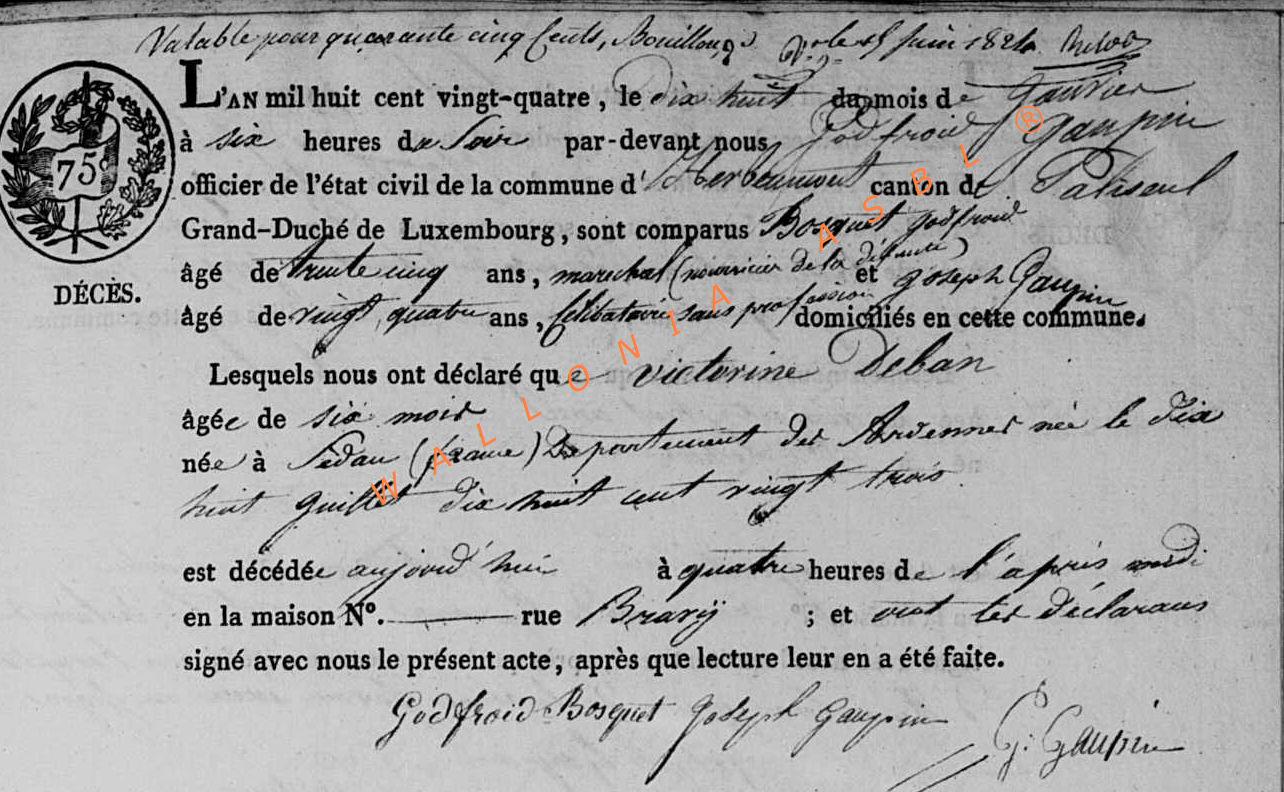 Valable pour quarante cinq Cents, Bouillon, le 15 juin 1824
L'AN mil huit cent vingt-quatre, le dix huit du mois de Janvier
à six heures du Soir par-devant nous Godfroid Gaupin
officier de l'état civil de la commune d'Herbeumont canton de Paliseul
Grand-Duché de Luxembourg, sont comparus Bosquet godfroid
âgé de trente cinq ans, marechal (nourricier de la défunte) et Joseph Gaupin
âgé de vingt quatre ans, Célibataire sans profession domiciliés en cette commune.
75
DÉCÈS.
Lesquels nous ont déclaré que victorine Deban
âgée de six mois
née à Sedan (france) Departement des Ardennes née le dix
huit Juillet dix huit cent vingt trois
est décédée aujourd'hui à quatre heures de l'après midi
en la maison N°. rue Bravy ; et ont les déclarans
signé avec nous le présent acte, après que lecture leur en a été faite.
Godfroid Bosquet Joseph Gaupin G. Gaupin
WALLONIA ASBL ®